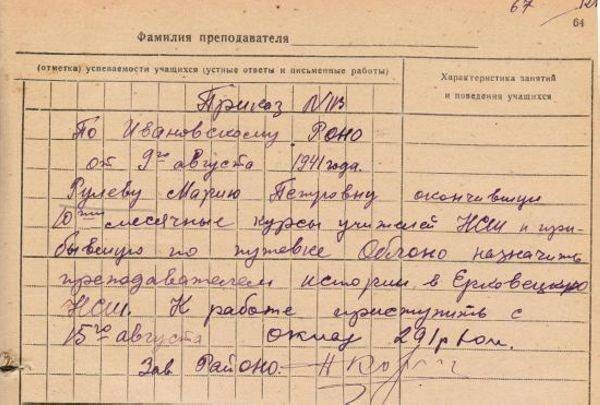 67
64
Фамилия преподавателя
(отметка) успеваемости учащихся (устные ответы и письменные работы)
Характеристика занятий
и поведения учащихся
Приказ N 113
По Ивановскому Роно
от 9го августа 1941 года.
Рулеву Марию Петровну окончившую
10ти месячные курсы учителей НСШ и при-
бывшую по путевке Облоно назначить
преподавателем истории в Ерковецкую
НСШ. К работе приступить с
15го августа оклад 291р
Зав Районо.